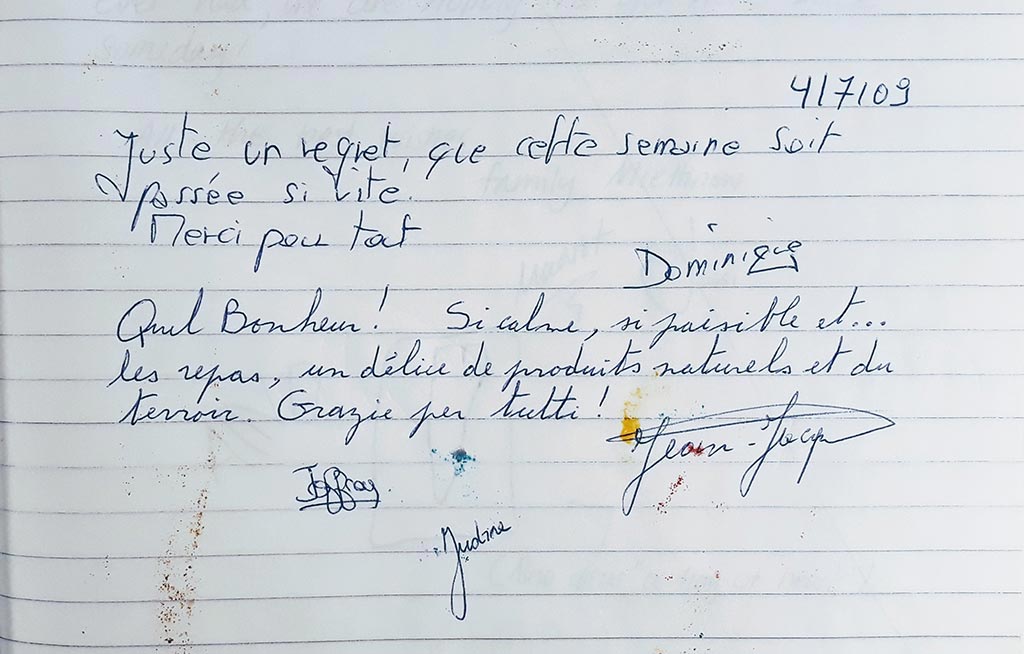 4/7/09
Juste un regret, que cette semaine soit
passée si vite.
Merci pour tout
Dominique
Quel Bonheur! Si calme, si paisible et...
les repas, un délice de produits naturels et du
terroir. Grazie per tutti!
Jean-Jacq
Joffroy